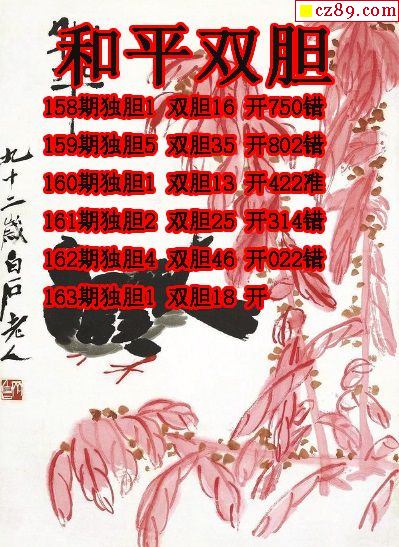 cz89.com
和平双胆
158期独胆1 双胆16 开750错
159期独胆5 双胆35 开802错
160期独胆1 双胆13 开422准
161期独胆2 双胆25 开314错
162期独胆4 双胆46 开022错
163期独胆1 双胆18 开
九十二岁白石老人